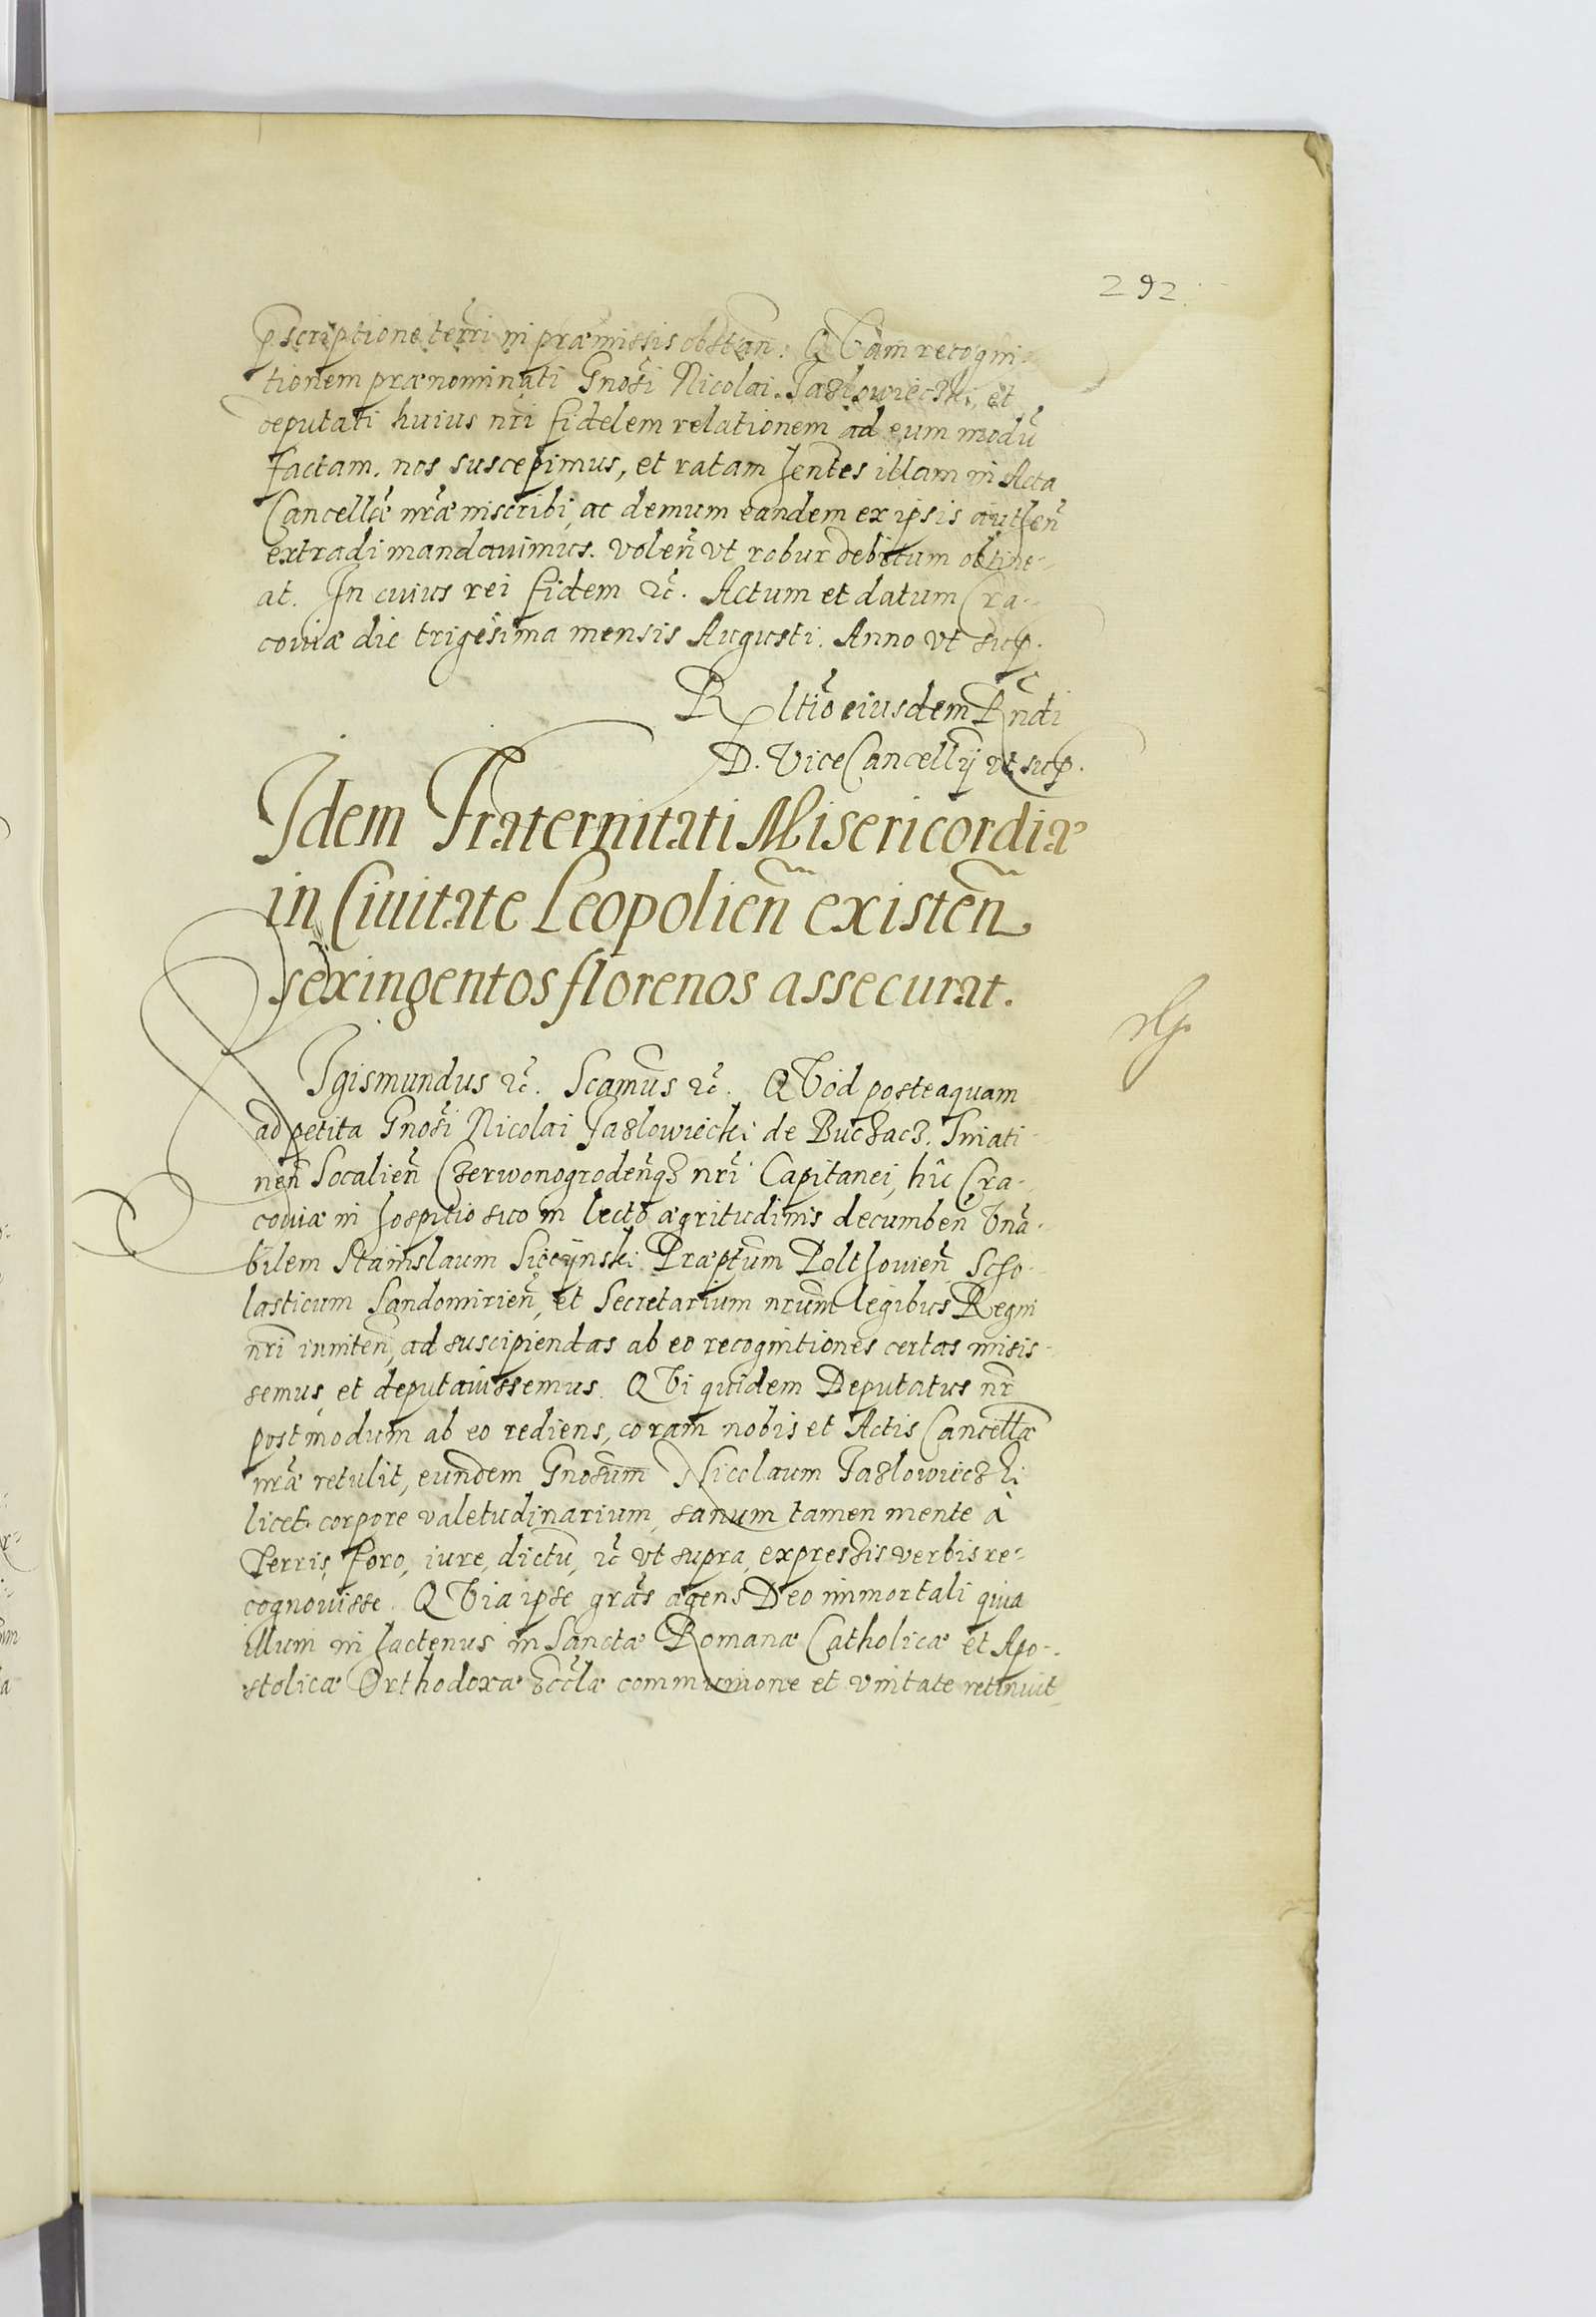 292.
pscriptione terri in præmissis obstan̄. QVam recogni-
tionem prænominati Gnosi Nicolai Jazlowieczki, et
deputati huius nri fidelem relationem ad eum modū
factam, nos suscepimus, et ratam hentes illam in Acta
Cancellæ nræ inscribi, ac demum eandem ex ipsis authen̄
extradi mandauimus. Volen̄ vt robur debitum obtine-
at. In cuius rei fidem &c. Actum et datum Cra-
couiæ die trigesima mensis Augusti. Anno vt sup.
Rltio eiusdem Rndi
D. ViceCancellij vt sup.
Idem Fraternitati Misericordiæ
in Ciuitate Leopolien̄ existen̄
sexingentos florenos assecurat.
SIgismundus &c. Scamus &c. QVod posteaquam
ad petita Gnosi Nicolai Jazlowiecki de Buczacz. Sniati-
nen̄ Socalien̄ Czerwonogroden̄q3 nri Capitanei, hic Cra-
couiæ in hospitio suo in lecto ægritudinis decumben̄ Vna-
bilem Stanislaum Siecijnski Præptum Polthouien̄ Scho-
lasticum Sandomirien̄, et Secretarium nrum legibus Regni
nri inniten̄, ad suscipiendas ab eo recognitiones certas misis-
semus, et deputauissemus. QVi quidem Deputatus nr
postmodum ab eo rediens, coram nobis et Actis Cancellæ
nræ retulit, eundem Gnosum Nicolaum Jazlowieczki
licet corpore valetudinarium, sanum tamen mente à
Terris, foro, iure, dictū, &c vt supra, expressis verbis re-
cognouisse. QVia ipse gras agens Deo immortali quia
illum in hactenus in Sanctæ Romanæ Catholicæ et Apo-
stolicæ Orthodoxæ Ecclæ communione et vnitate retinuit